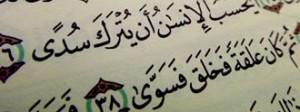 يَحْسَبُ ٱلْإِنسَٰنُ أَن يُتْرَكَ سُدًى
ثُمَّ كَانَ عَلَقَةً فَخَلَقَ فَسَوَّىٰ ٣٨